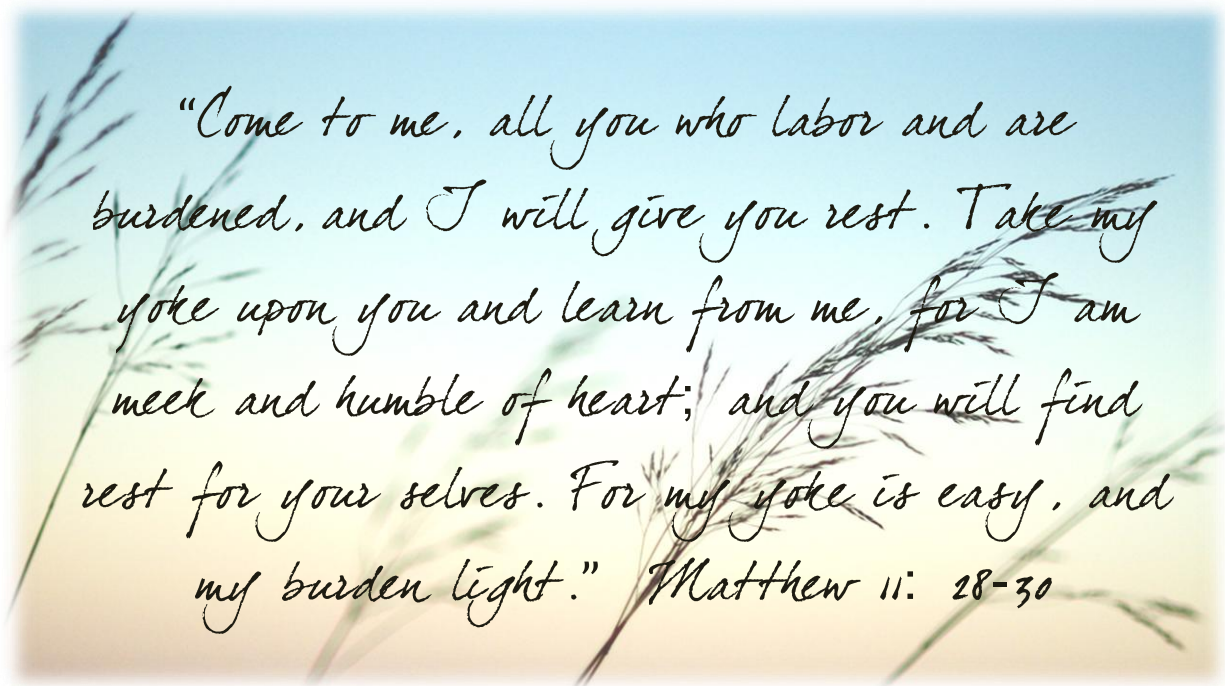 “Come to me, all you who labor and are
burdened, and I will give you rest. Take my
yoke upon you and learn from me, for I am
meek and humble of heart; and you will find
rest for your selves. For my yoke is easy, and
my burden light.” Matthew 11: 28-30